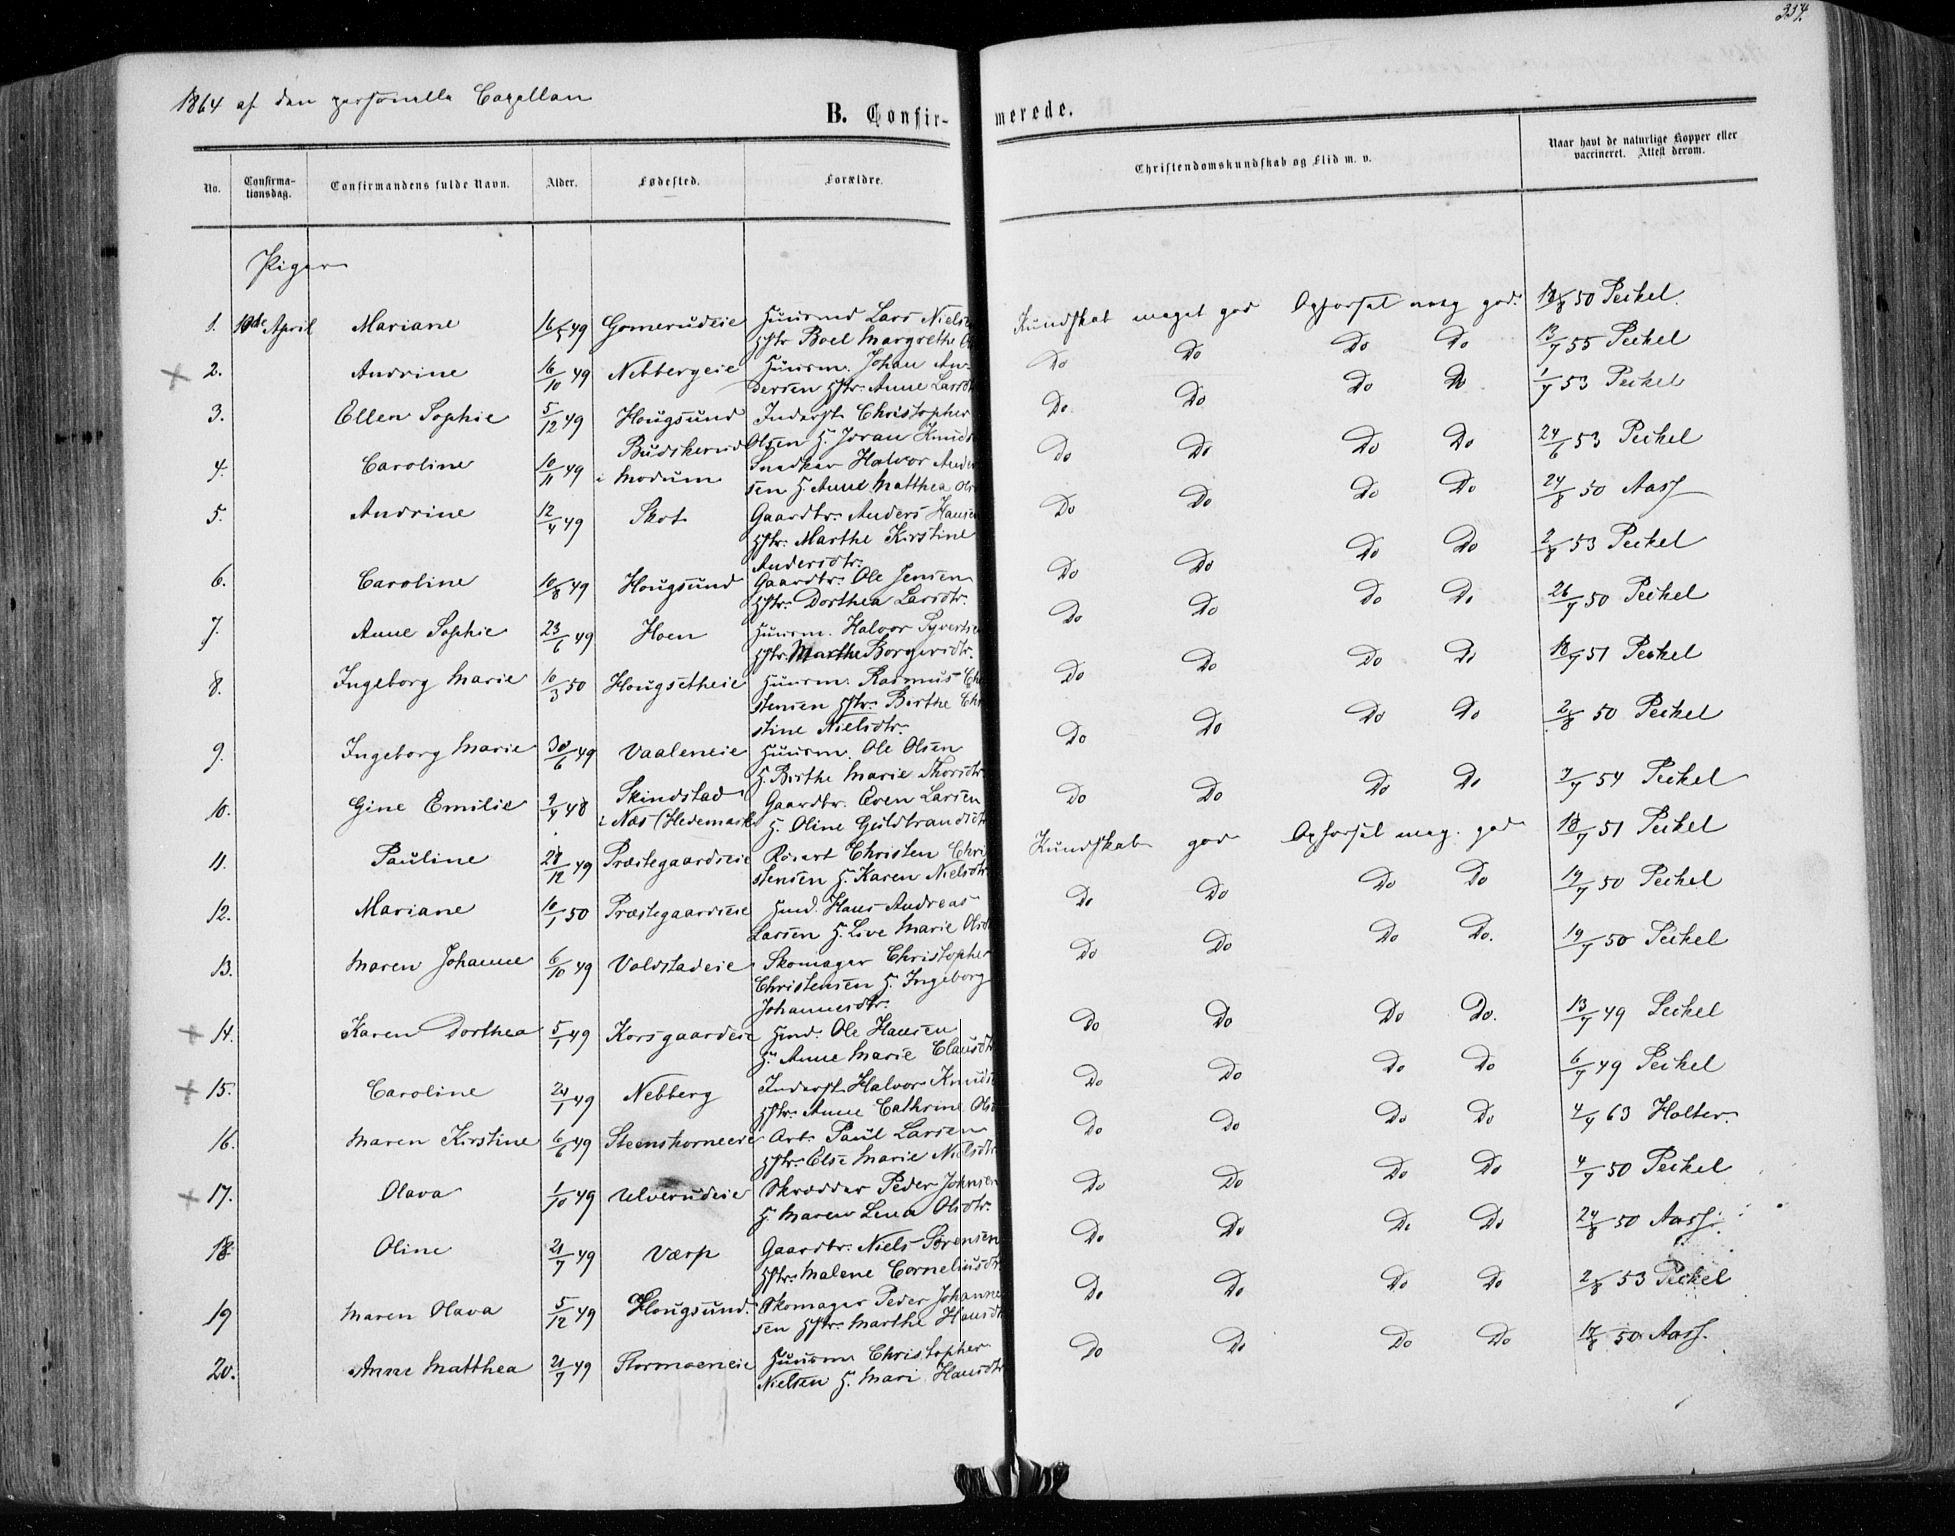 354.
1864 af den personelle Capellan
B. Confirmerede.
No. Confirmationsdag. Confirmandens fulde Navn. Alder. Fødested. Forældre. Christendomskundskab og Flid m. v. Naar havt de naturlige Kopper eller vaccineret. Attest derom.
Piger
1. April Mariane 16/5 49 Gomerudeie Huusmd Lars Nielse
Hstr Boel Margrethe
Kundskab meget god Opførsel meg god. 18/8 50 Peckel.
2. Andrine 16/10 49 Nebbergeie Huusm. Johan An-
dersen Hstr. Anne Larsdt
Do Do Do Do 13/7 55 Peckel
3. Ellen Sophie 5/12 49 Hougsund Inderst Christopher
Olsen H. Joran Knuds
Do Do Do Do 1/7 53 Peckel
4. Caroline 10/11 49 Buskerud
i Modum Snedker Halvor Ander
sen H. Anne Matthea Ols
Do Do Do Do 24/6 53 Peckel
5. Andrine 12/4 49 Skot Gaardbr. Anders Hansen
Hstr. Marthe Kirstine
Andersdtr.
Do Do Do Do 24/8 50 Aass
6. Caroline 10/8 49 Hougsund Gaardbr. Ole Jensen
Hstr. Dorthea Larsdtr.
Do Do Do Do 2/8 53 Peckel
7. Anne Sophie 23/6 49 Hoen Huusm. Halvor Syverts
Hstr. Marthe Borgersdtr.
Do Do Do Do 26/7 50 Peckel
8. Ingeborg Marie 10/3 50 Hougsetheie Huusm. Rasmus Chr
stensen Hstr. Berthe Chr
stine Nielsdtr.
Do Do Do Do 18/7 51 Peckel
9. Ingeborg Marie 30/6 49 Vaaleneie Huusm. Ole Olsen
H. Birthe Marie Thorsdtr.
Do Do Do Do 2/8 50 Peckel
10. Gine Emilie 9/4 48 Skindstad
i Næs (Hedemark Gaardbr. Even Larsen
H. Oline Guldbrandsdt
Do Do Do Do 7/7 54 Peckel
11. Pauline 28/12 49 Præstegaardseie Christen Chri
stensen H. Karen Nielsdtr.
Kundskab god Opførsel meg. god 18/7 51 Peckel
12. Mariane 10/1 50 Præstegaardseie Hmd. Hans Andreas
Larsen H. Live Marie Olsd
Do Do Do Do 19/7 50 Peckel
13. Maren Johanne 6/10 49 Voldstadeie Skomager Christopher
Christensen H. Ingeborg
Johannesdtr.
Do Do Do Do. 19/7 50 Peckel
14. Karen Dorthea 5/1 49 Korsgaardeie Hmd. Ole Hansen
H. Anne Marie Clausdt
Do Do Do Do. 13/7 49 Peckel
15. Caroline 24/1 49 Nebberg Inderst Halvor Knuds
Hstr. Anne Cathrine Ols
Do Do Do Do 6/7 49 Peckel
16. Maren Kirstine 6/6 49 Steenskorneeie Arb. Paul Larsen
Hstr. Else Marie Nielsdtr
Do Do Do Do 4/4 63 Holter.
17. Olava 1/10 49 Ulverudeie Skrædder Peder Johnsen
H. Maren Lena Olsdtr.
Do Do Do Do 4/7 50 Peckel
18. Oline 21/7 49 Værp Gaardbr. Niels Sørensen
Hstr. Malene Corneliusdt
Do Do Do Do 24/8 50 Aass.
19 Maren Olava 5/12 49 Hougsund. Skomager Peder Johanne
sen Hstr. Marthe Hansdt
Do Do Do Do 2/8 53 Peckel
20. Anne Matthea 21/7 49 Stormoeneie Huusm Christopher
Nielsen H. Mari Hansdtr
Do Do Do Do 17/8 50 Aass.